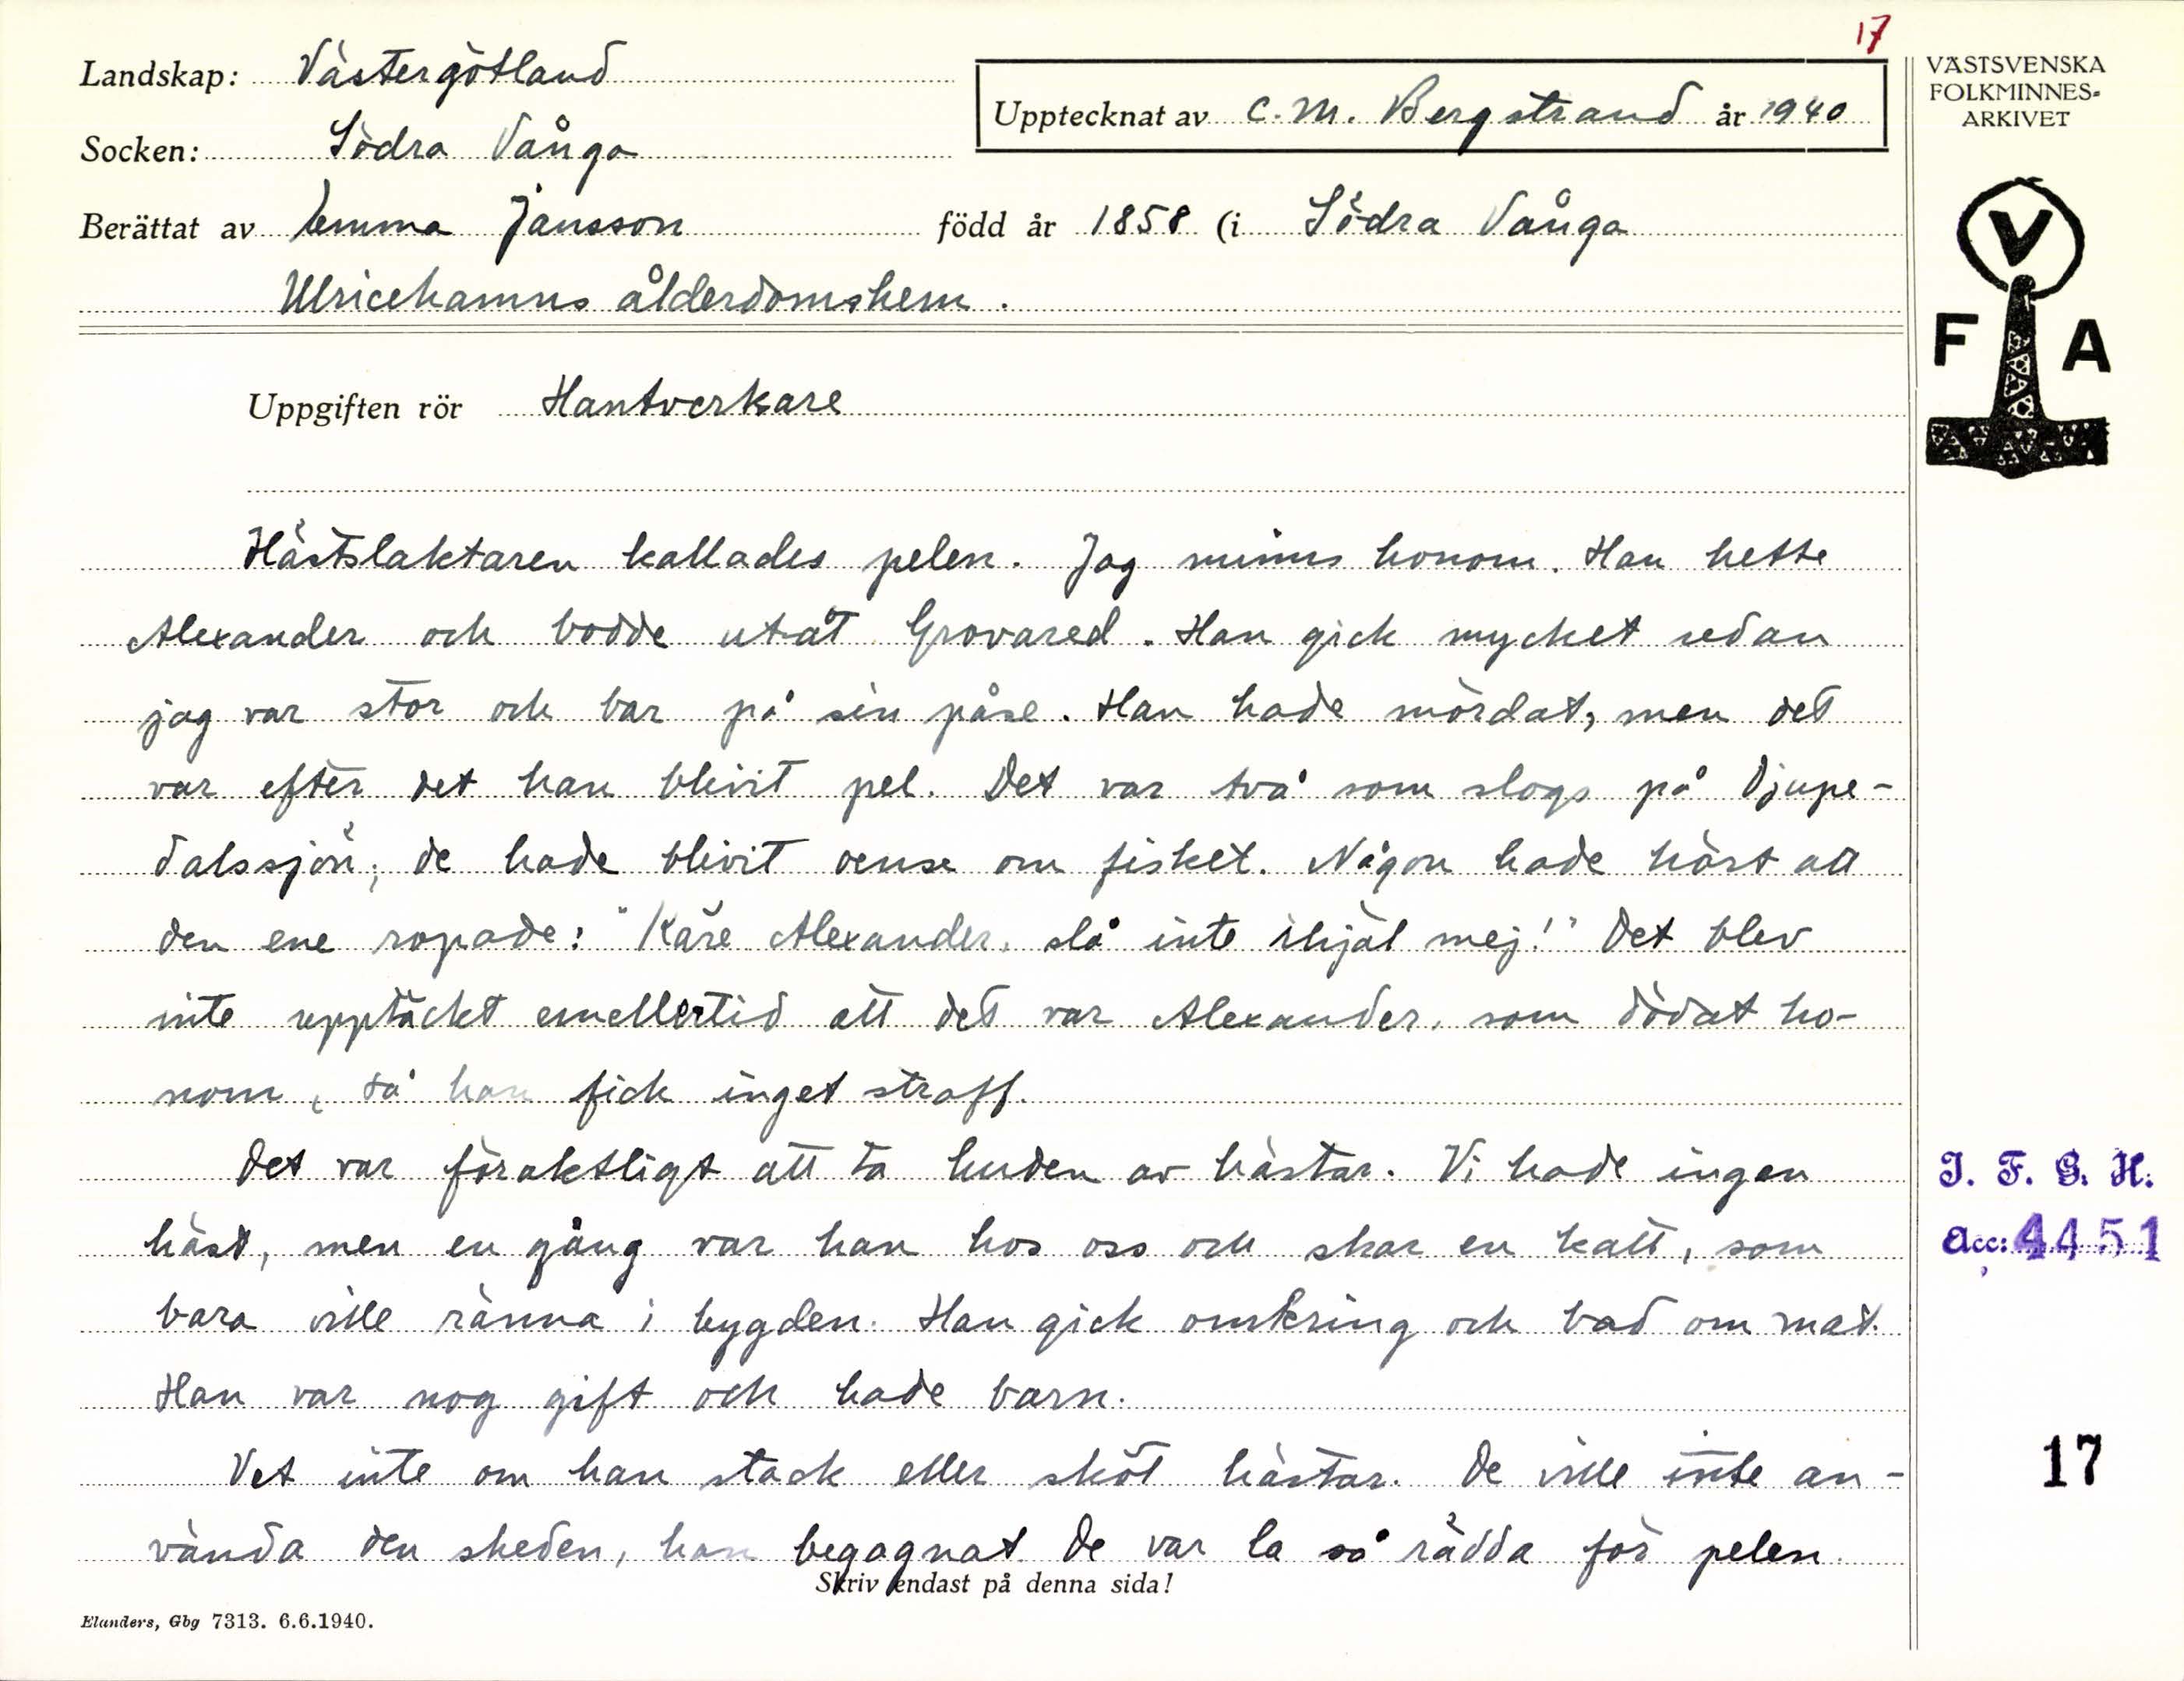 17
Landskap: Västergötland
Upptecknat av C. M. Bergstrand år 1940
Socken: Södra Vånga
Berättat av Emma Jansson född år 1858 (i Södra Vånga
Ulricehamns ålderdomshem.
Uppgiften rör Hantverkare
Hästslaktaren kallades pelen. Jag minns honom. Han hette
Alexander och bodde utåt Grovared. Han gick mycket sedan
jag var stor och bar på sin påse. Han hade mördat, men det
var efter det han blivit pel. Det var två som slogs på Djupe-
dalssjön; de hade blivit oense om fisket. Någon hade hört att
den ene ropade: "Käre Alexander, slå inte ihjäl mej!" Det blev
inte upptäckt emellertid att det var Alexander, som dödat ho-
nom, så han fick inget straff.
Det var föraktligt att ta huden av hästar. Vi hade ingen
häst, men en gång var han hos oss och skar en katt, som
bara ville ränna i bygden. Han gick omkring och bad om mat.
Han var nog gift och hade barn.
Vet inte om han stack eller sköt hästar. De ville inte an-
vända den skeden, han begagnat. De var la så rädda för pelen.
Skriv endast på denna sida!
Elanders, Gbg 7313. 6.6.1940.
VÄSTSVENSKA
FOLKMINNES-
ARKIVET
V
F A
I. F. G. H.
Acc: 4451
17